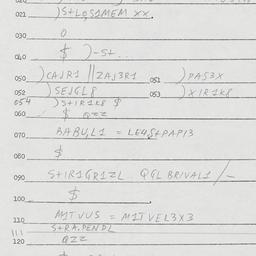 021 )S+LOS1MEM XX.
030 0
$ )-S+...
040
050 )CAJR1 //ZAJ3R1 051 )PAS3X
052 )SEJGL8 053 )XIR1K8
054 )S+IR1K8 $
060 $ QZZ
070 BABUL1 = LEQS+PAPI3
080 $
090 S+IR1GR1ZL.. QGL BRIVAL1 /-
$
100
110 M1TVUS = M1TVEL3X3
111 S+RA.PENDL
120 QZZ
$